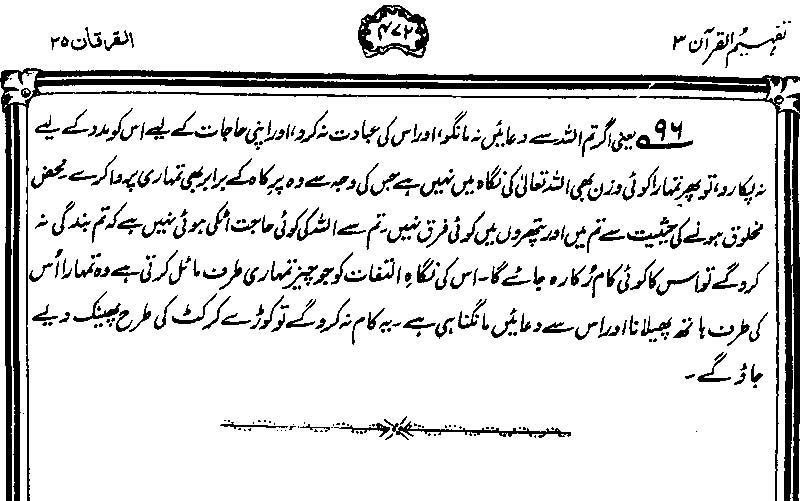 تفہیم القرآن ۳
۴۷۲
الفرقان ۲۵
۹۶ یعنی اگر تم اللہ سے دعائیں نہ مانگو، اور اس کی عبادت نہ کرو، اور اپنی حاجات کے لیے اس کو مدد کے لیے
نہ پکارو، تو پھر تمہارا کوئی وزن بھی اللہ تعالیٰ کی نگاہ میں نہیں ہے جس کی وجہ سے وہ پرِ کاہ کے برابر بھی تمہاری پروا کرے۔ محض
مخلوق ہونے کی حیثیت سے تم میں اور پتھروں میں کوئی فرق نہیں۔ تم سے اللہ کی کوئی حاجت اٹکی ہوئی نہیں ہے کہ تم بندگی نہ
کرو گے تو اس کا کوئی کام رُکا رہ جائے گا۔ اس کی نگاہِ التفات کو جو چیز تمہاری طرف مائل کرتی ہے وہ تمہارا اُس
کی طرف ہاتھ پھیلانا اور اس سے دعائیں مانگنا ہی ہے۔ یہ کام نہ کرو گے تو کوڑے کرکٹ کی طرح پھینک دیے
جاؤ گے۔